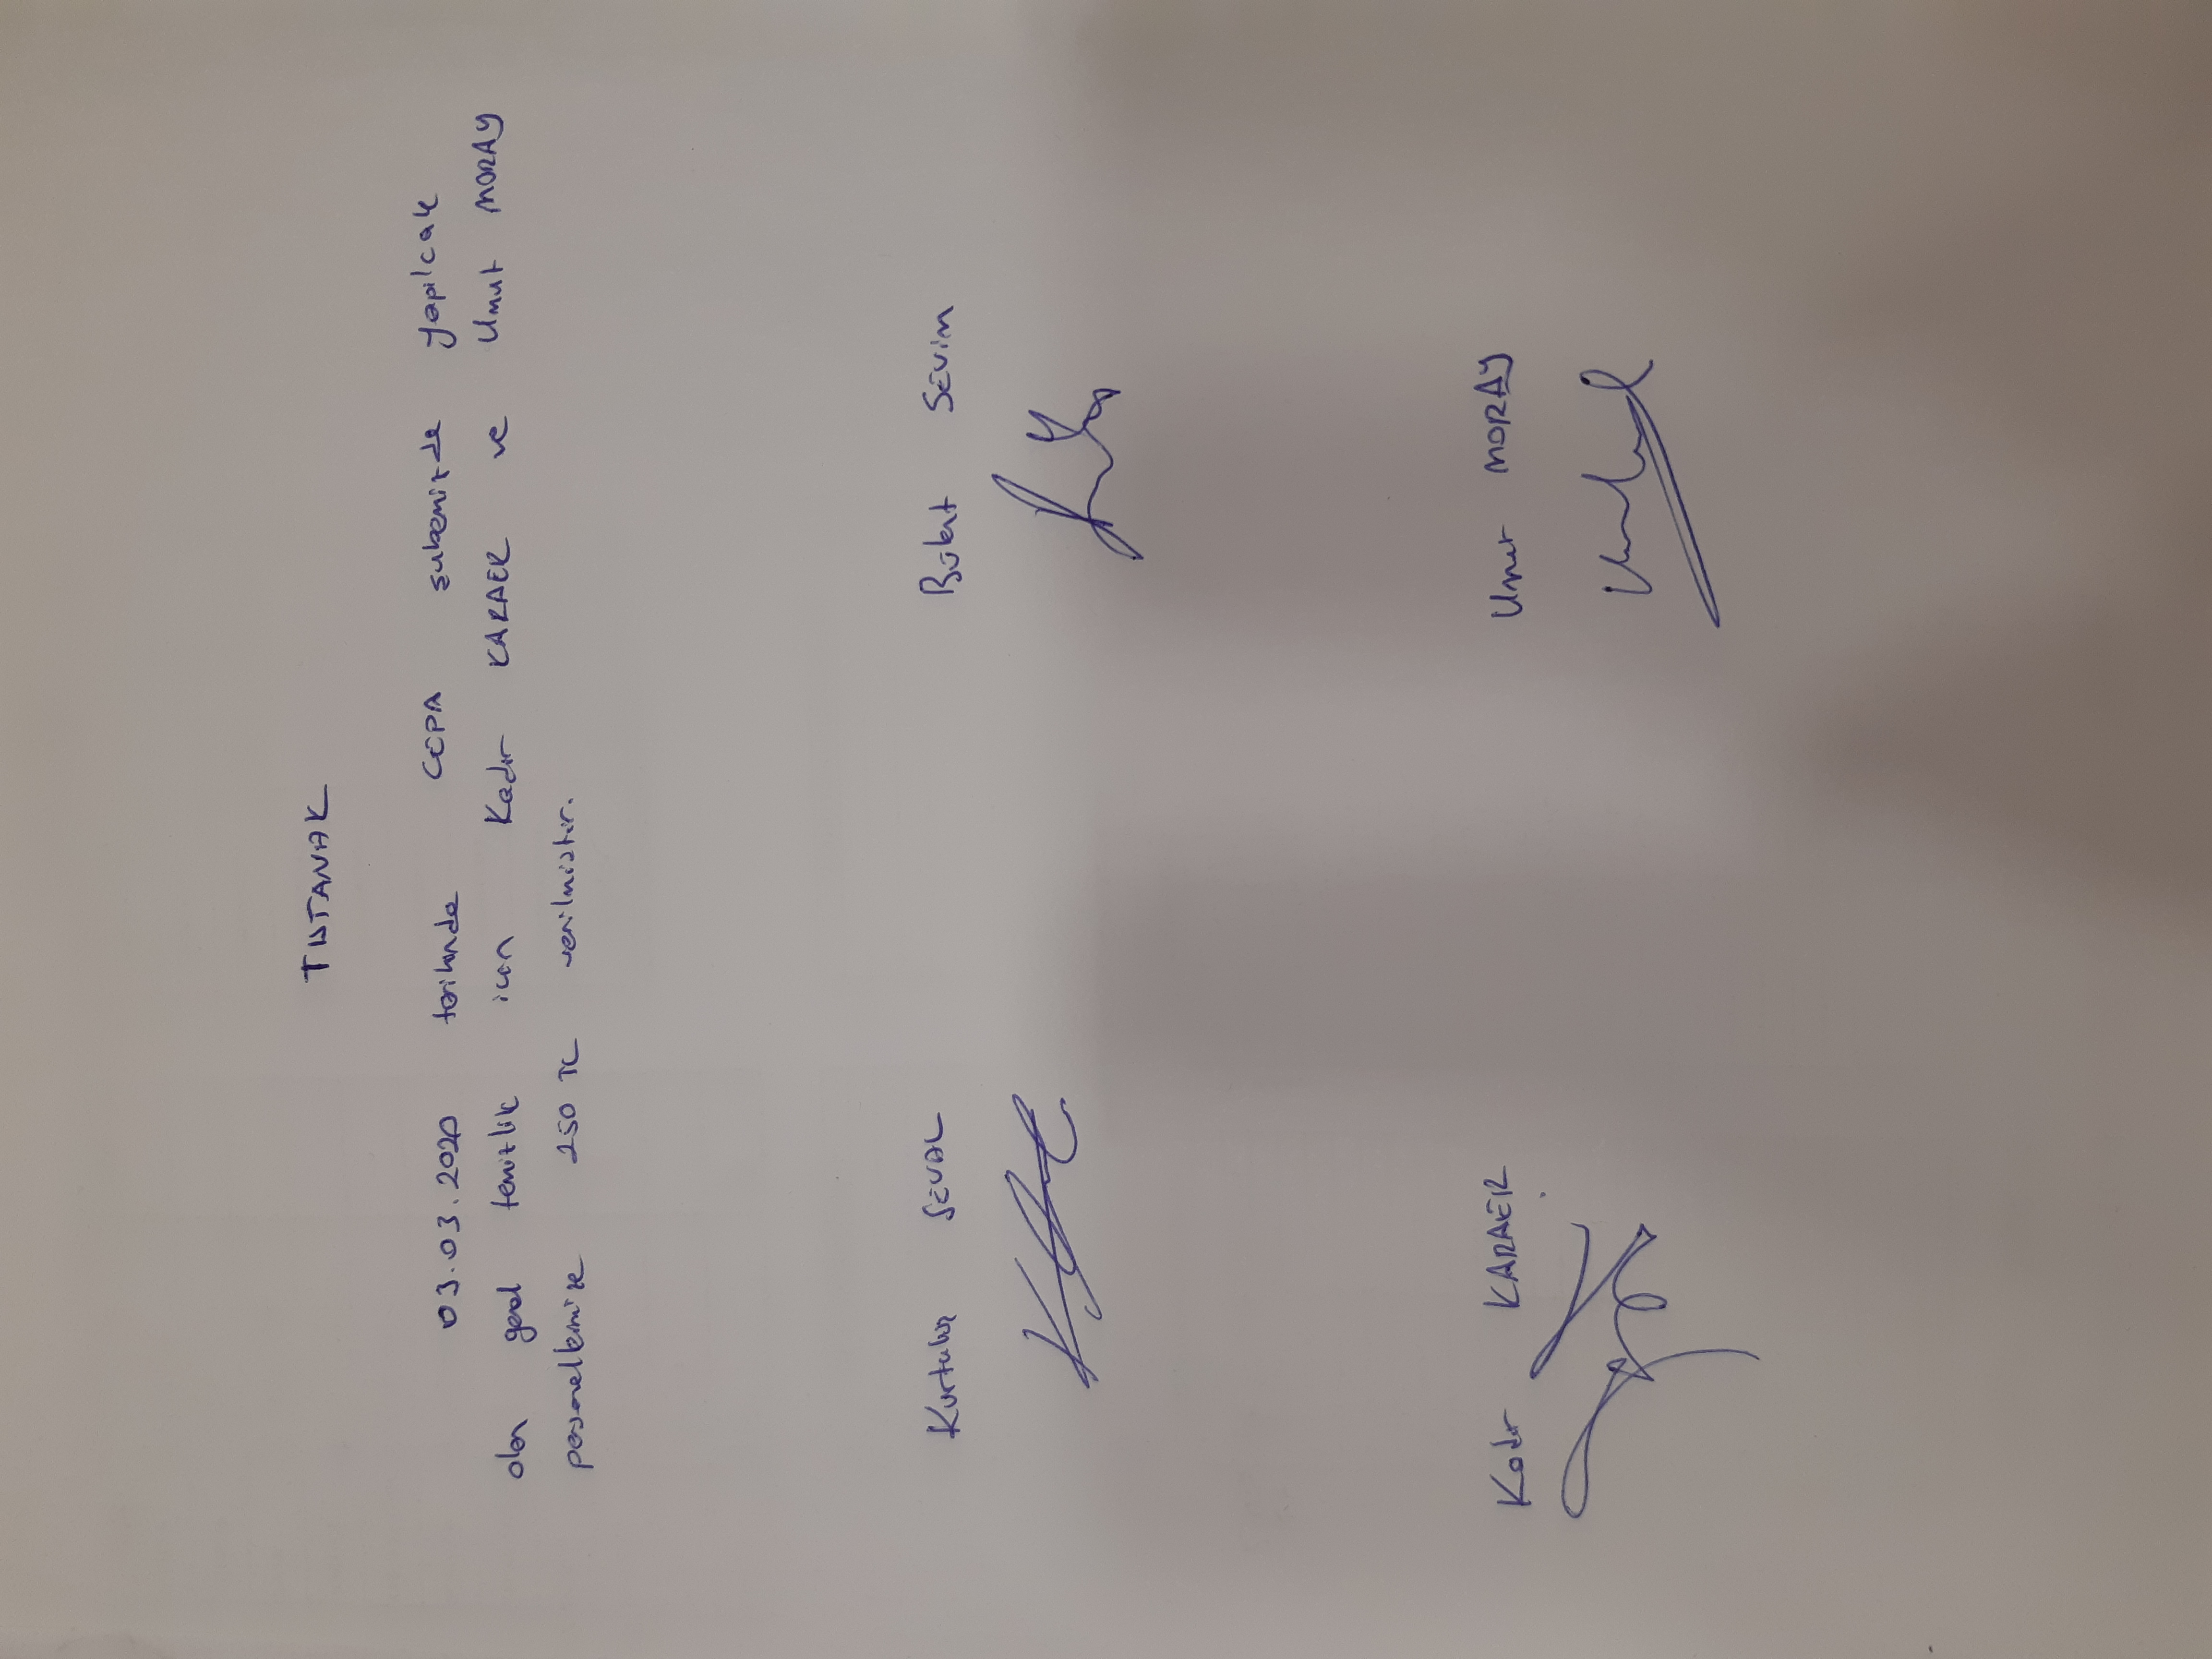 TUTANAK
03.03.2020 tarihinde CEPA şubemizde yapılcak
olan genel temizlik için Kadir KARAER ve Umut MORAY
personellerimize 250 TL verilmiştir.
Kurtuluş SEVAL Bülent SEVİM
Kadir KARAER Umut MORAY